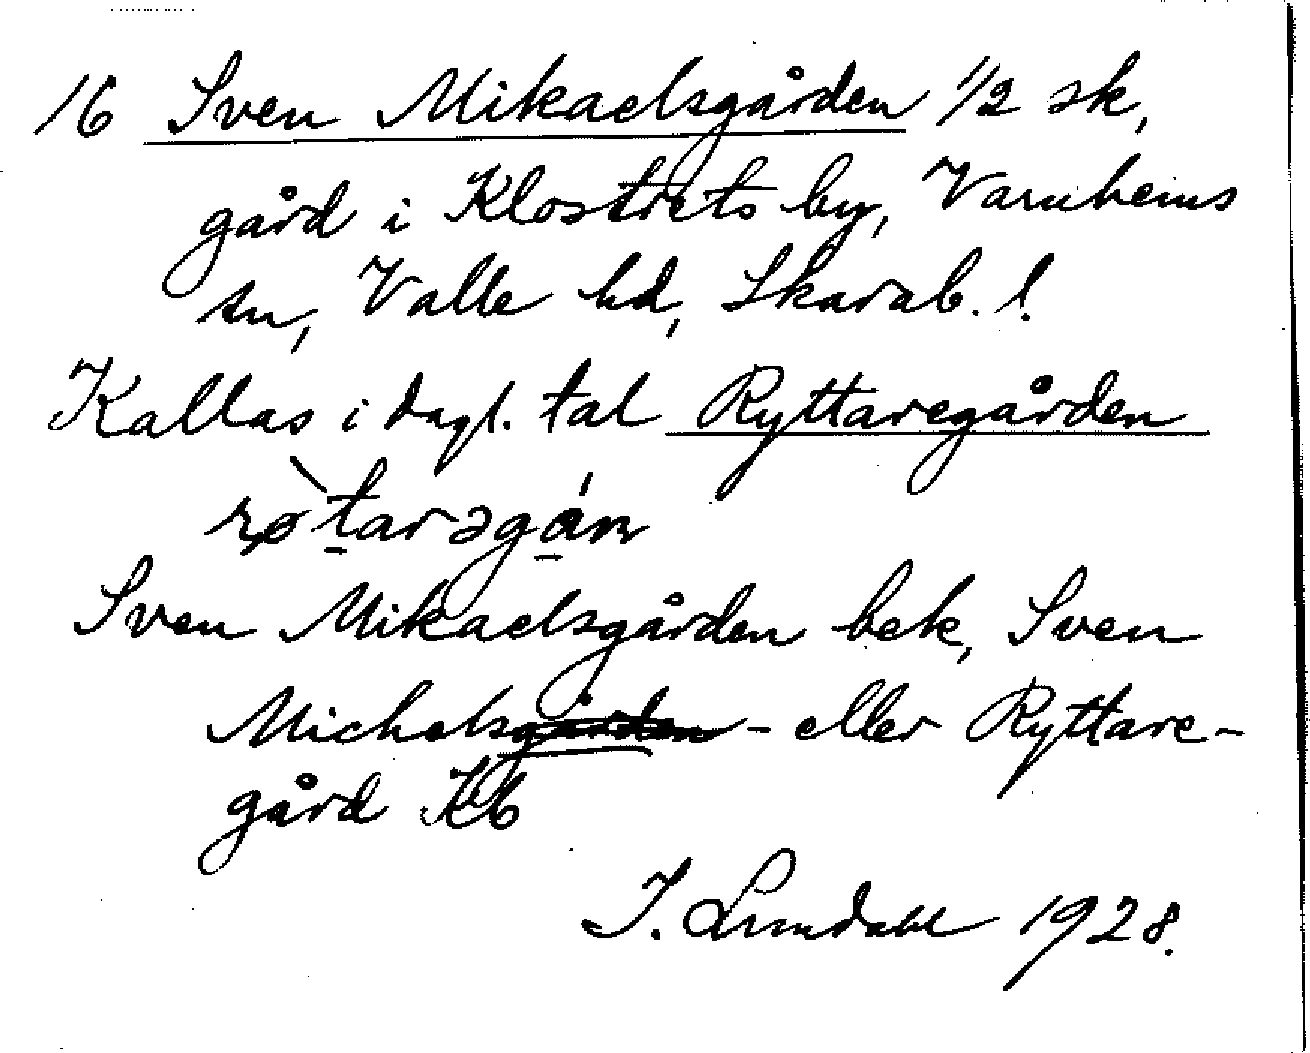 16 Sven Mikaelsgården 1/2 sk,
gård i Klostrets by, Varnhems
sn, Valle hd, Skarab. l.
Kallas i dagl. tal Ryttaregården
Sven Mikaelsgården bek, Sven
Michels - eller Ryttare-
gård Kb
I. Lundahl 1928.